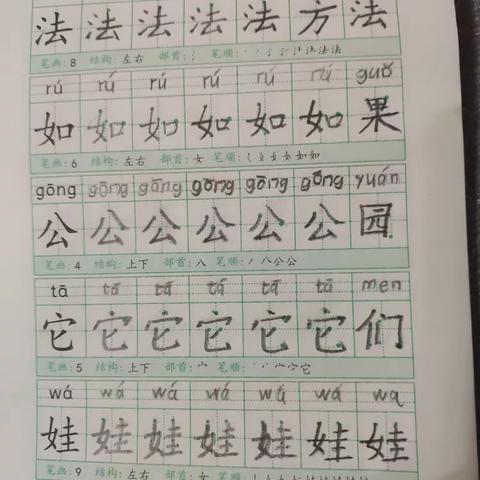 法 法 法 法 法 方 法
笔画: 8 结构: 左右 部首: 氵 笔顺:
rú rú rú rú rú rú guǒ
如 如 如 如 如 如 果
笔画: 6 结构: 左右 部首: 女 笔顺:
gōng gōng gōng gōng gōng gōng yuán
公 公 公 公 公 公 园
笔画: 4 结构: 上下 部首: 八 笔顺: 丿 八 公 公
tā tā tā tā tā tā men
它 它 它 它 它 它 们
笔画: 5 结构: 上下 部首: 宀 笔顺:
wá wá wá wá wá wá wa
娃 娃 娃 娃 娃 娃 娃
笔画: 9 结构: 左右 部首: 女 笔顺: